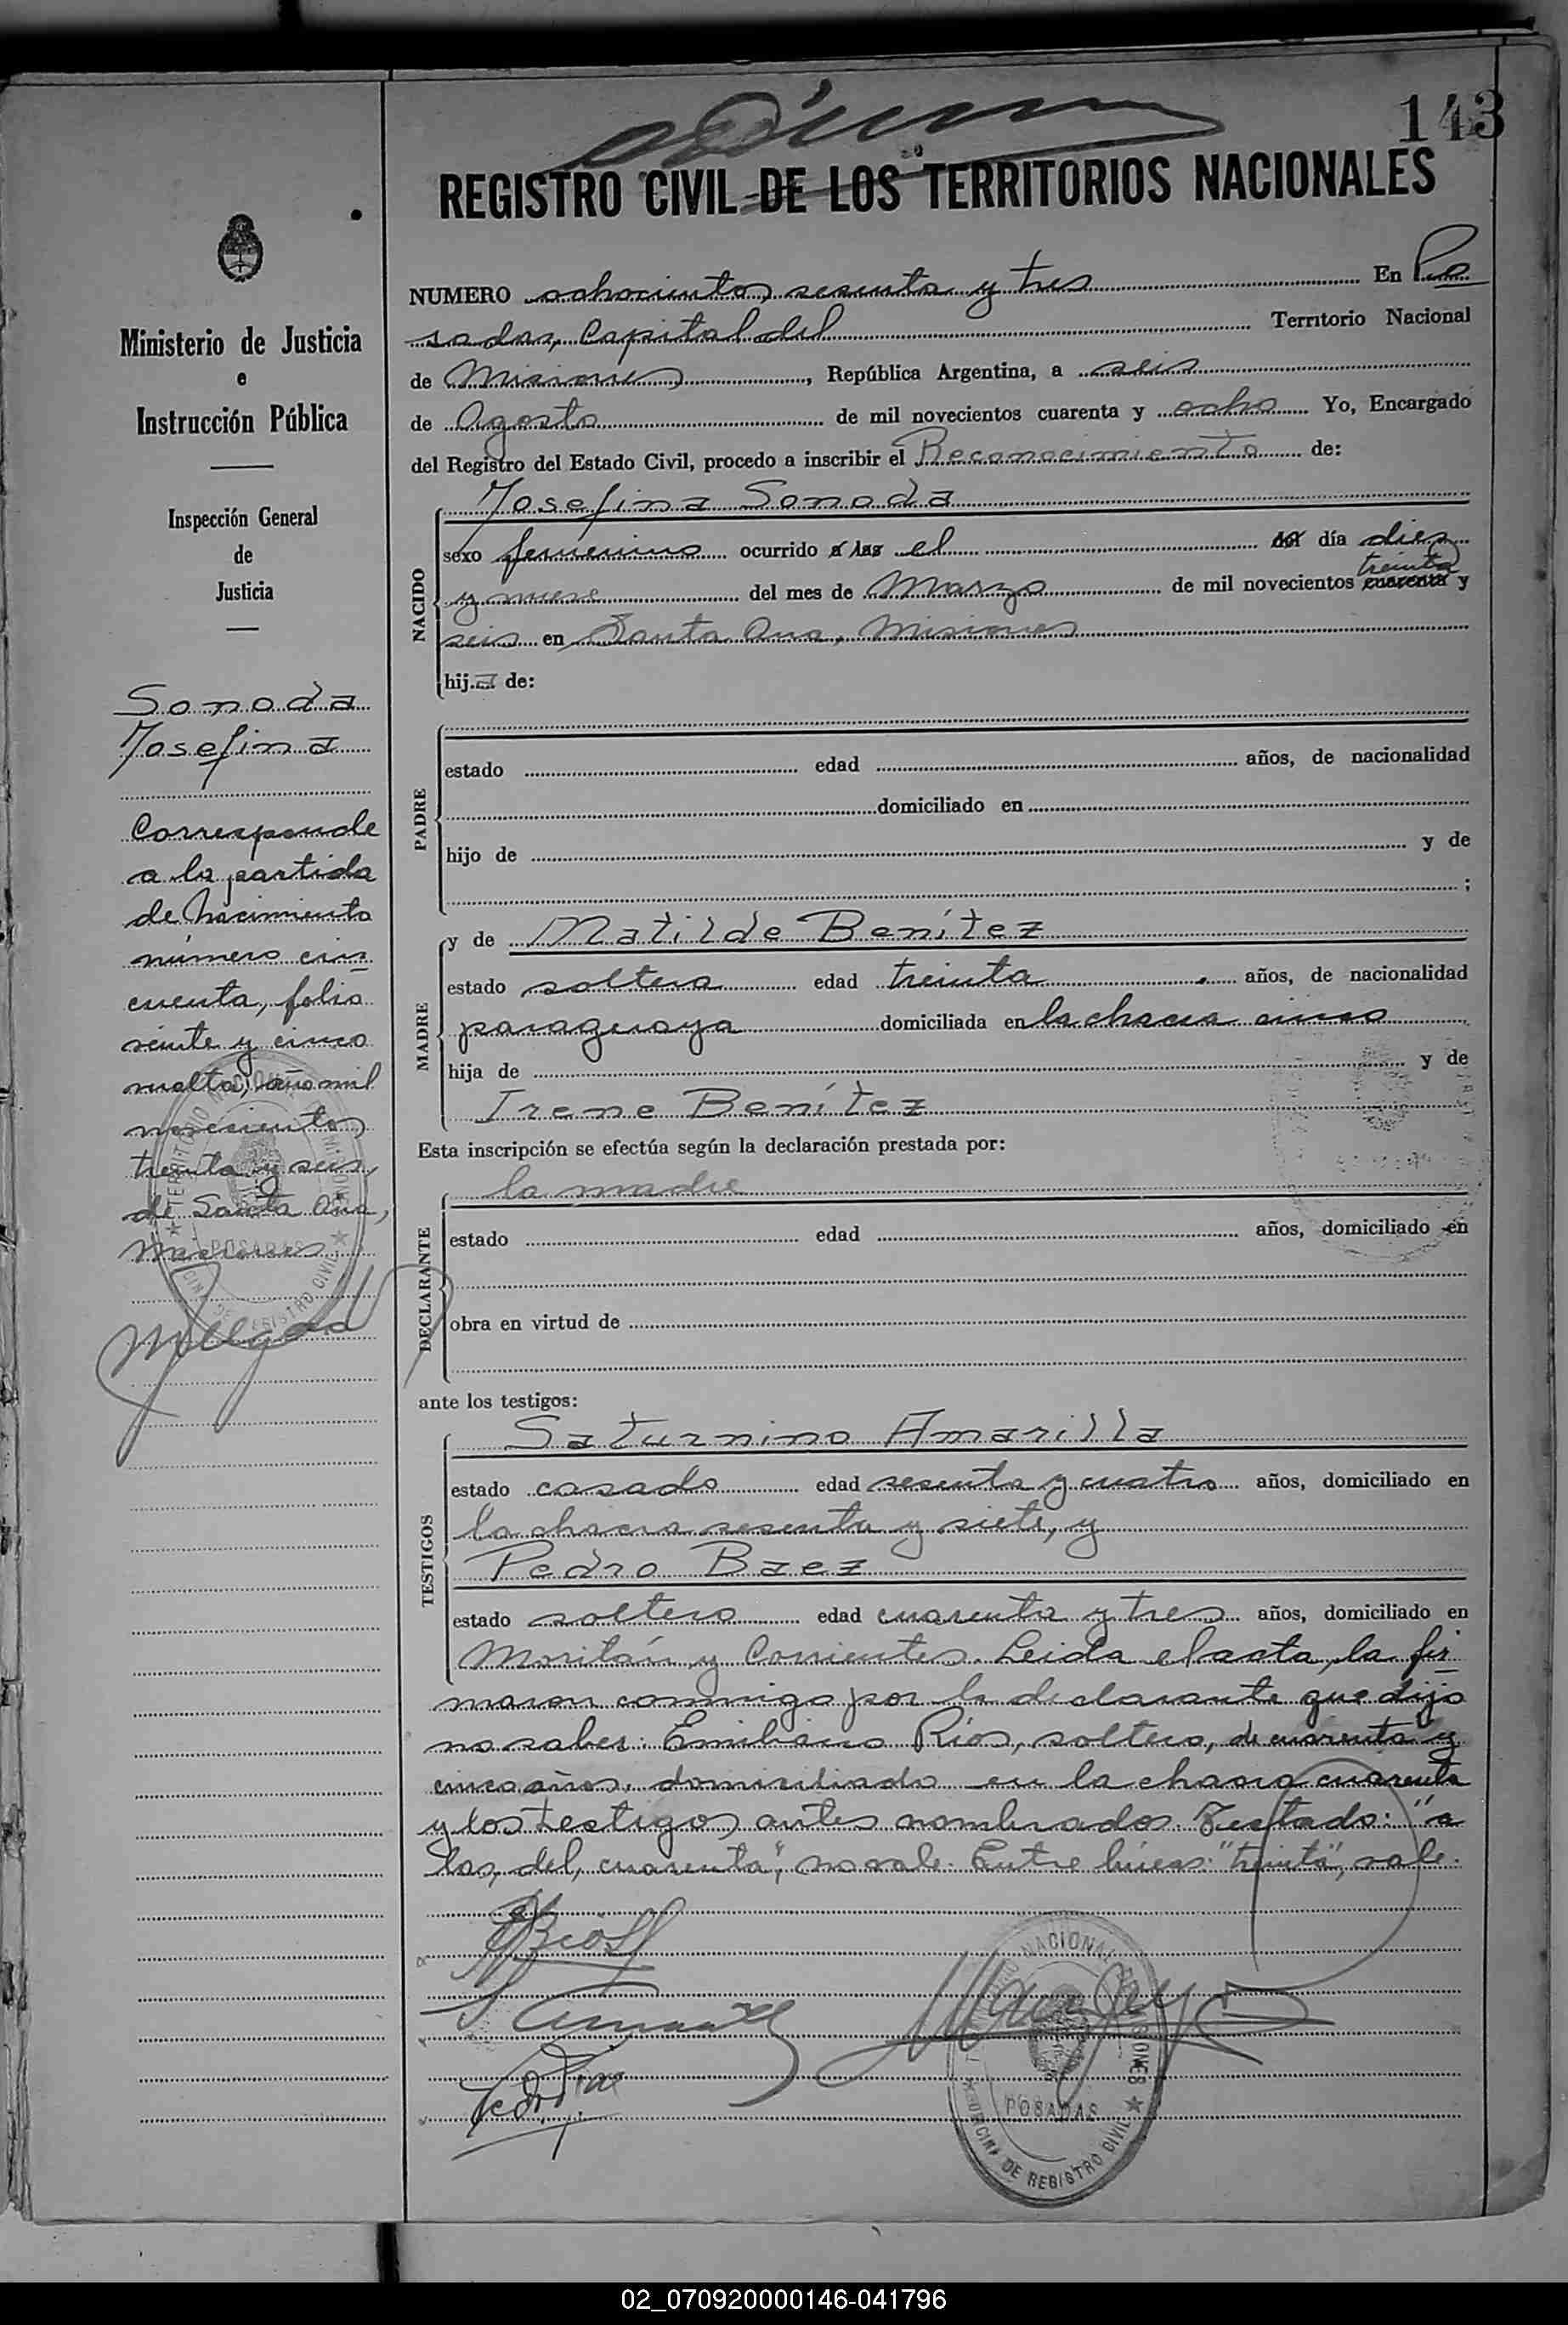 143
REGISTRO CIVIL DE LOS TERRITORIOS NACIONALES
Ministerio de Justicia
e
Instrucción Pública
Inspección General
de
Justicia
Sonoda
Josefina
Corresponde
a la partida
de Nacimiento
número cin
cuenta, folio
veinte y cinco
vuelta, año mil
novecientos
treinta y seis,
de Santa Ana,
Misiones
NUMERO ochocientos sesenta y tres En Po
sadas, Capital del Territorio Nacional
de Misiones, República Argentina, a seis
de Agosto de mil novecientos cuarenta y ocho Yo, Encargado
del Registro del Estado Civil, procedo a inscribir el Reconocimiento de:
NACIDO
Josefina Sonoda
sexo femenino ocurrido a las el del día diez
treinta
y nueve del mes de Marzo de mil novecientos cuarenta y
seis en Santa Ana, Misiones
hija de:
PADRE
estado edad años, de nacionalidad
domiciliado en
hijo de y de
;
MADRE
y de Matilde Benítez
estado soltera edad treinta años, de nacionalidad
paraguaya domiciliada en la chacra cinco
hija de y de
Irene Benítez
Esta inscripción se efectúa según la declaración prestada por:
DECLARANTE
la madre
estado edad años, domiciliado en
obra en virtud de
ante los testigos:
TESTIGOS
Saturnino Amarilla
estado casado edad sesenta y cuatro años, domiciliado en
la chacra sesenta y siete, y
Pedro Baez
estado soltero edad cuarenta y tres años, domiciliado en
Moritán y Corrientes. Leida el acta, la fir
maron conmigo por la declarante que dijo
no saber: Emiliano Rios, soltero, de cuarenta y
cinco años, domiciliado en la chacra cuarenta
y los testigos antes nombrados. Testado: "a
las, del, cuarenta", no vale. Entre líneas: "treinta", vale.
POSADAS
02_070920000146-041796